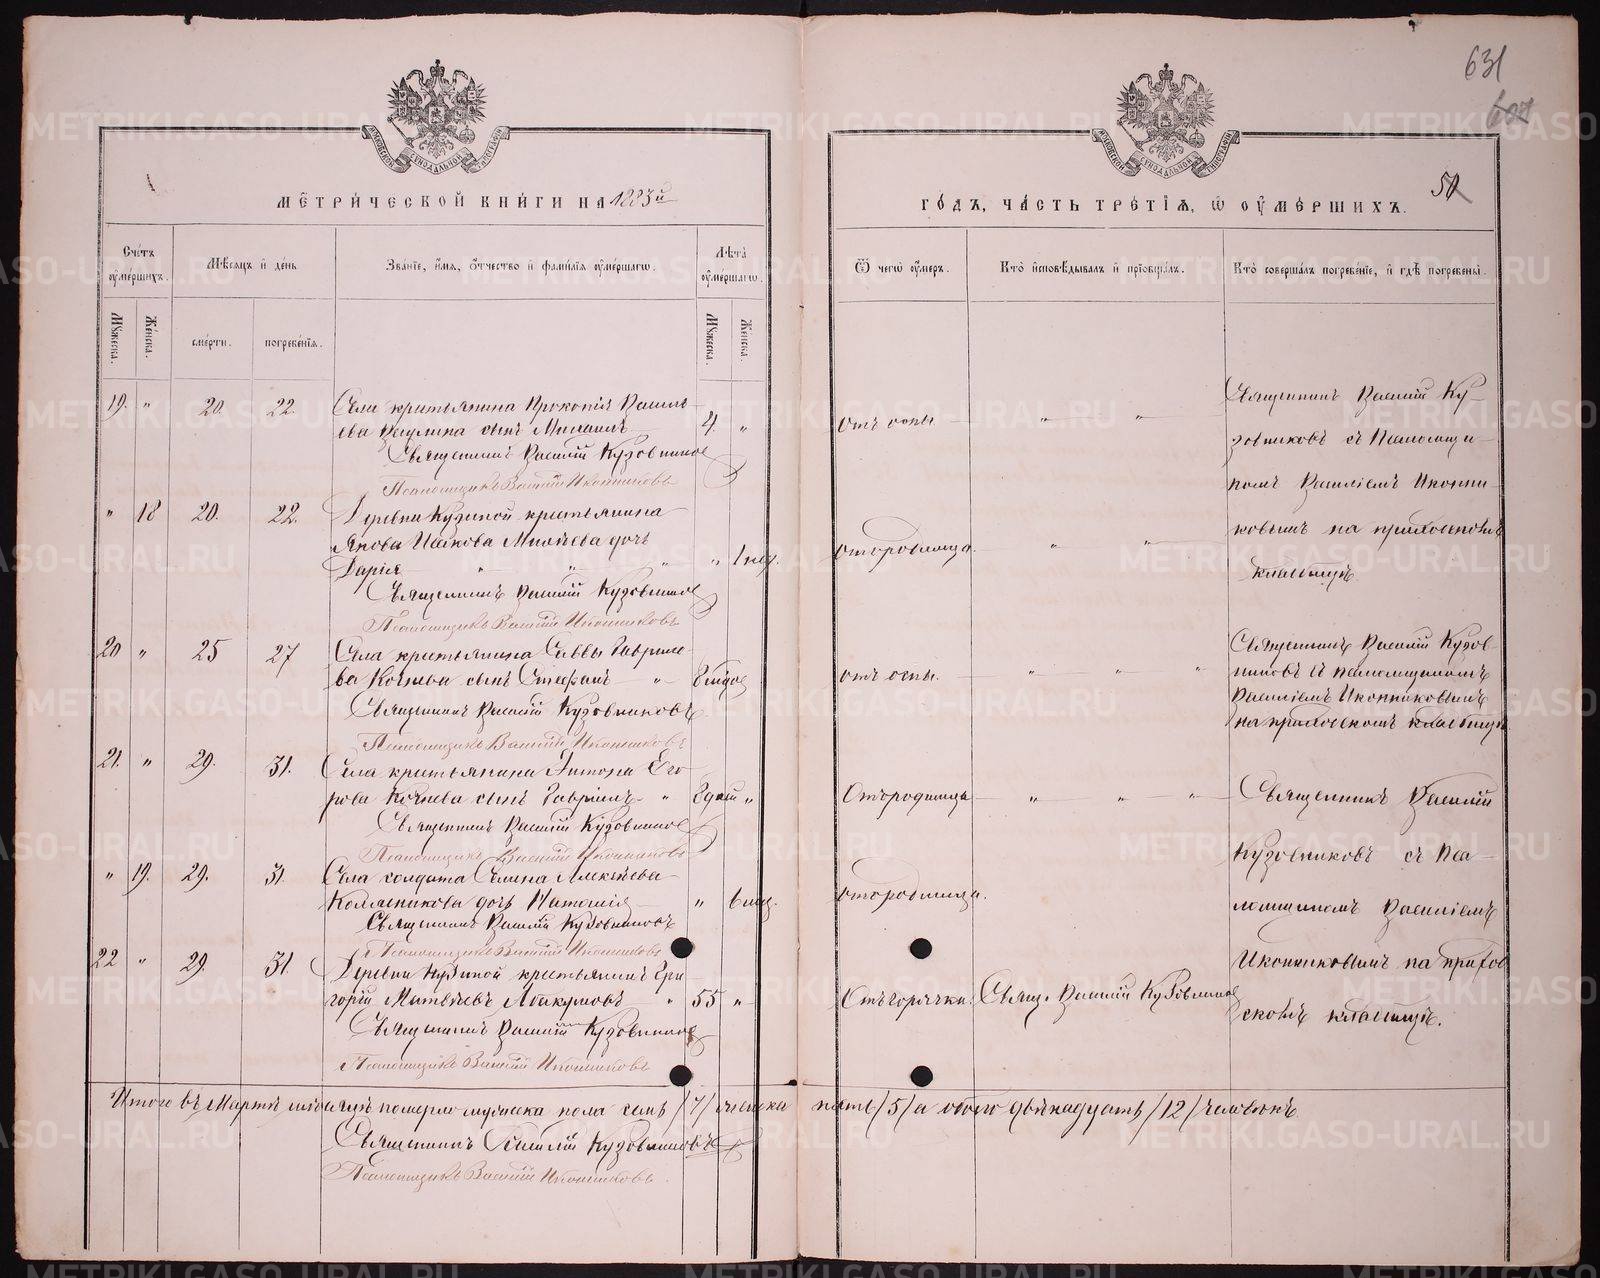 631
607
51
МЕТРИЧЕСКОЙ КНИГИ НА 1883й
ГОДЪ, ЧАСТЬ ТРЕТІЯ, Ѿ ОУМЕРШИХЪ.
Счетъ оумершихъ.
Мѣсяцъ и день
Званіе, имя, отчество и фамилія оумершагѡ.
Лѣта оумершагѡ.
Ѿ чегѡ оумеръ.
Кто исповѣдывалъ и пріобщалъ.
Кто совершалъ погребеніе, и гдѣ погребены.
Мужеска.
Женска.
смерти.
погребенія.
Мужеска.
Женска.
19. " 20. 22. Села крестьянина Прокопія Василь-
ева сынъ 4. "
Священникъ Василій Кузовников
Псаломщикъ Василій Иконниковъ
отъ оспы. " "
Священникъ Василій Ку-
зовниковъ съ Псаломщи-
комъ Василіемъ Иконни-
ковымъ на приходскомъ
кладбищѣ.
" 18 20. 22. Деревни Кузиной крестьянина
Якова Исакова дочь
Дарія " " " " 1 нед.
Священникъ Василій Кузовников
Псаломщикъ Василій Иконниковъ
отъ родимца. " "
20 " 25 27 Села крестьянина Саввы Гаврило-
ва Кочнева сынъ Стефанъ "
Священникъ Василій Кузовниковъ
Псаломщикъ Василій Иконниковъ
отъ оспы. " " "
Священникъ Василій Кузов-
никовъ съ псаломщикомъ
Василіемъ Иконниковымъ
на приходскомъ кладбищѣ
21. " 29. 31. Села крестьянина Антона Его-
рова Кочнева сынъ Гавріилъ " "
Священникъ Василій Кузовников
Псаломщикъ Василій Иконниковъ
Отъ родимца " " "
Священникъ Василій
Кузовниковъ съ Пса-
ломщикомъ Василіемъ
Иконниковымъ на приход-
скомъ кладбищѣ.
" 19. 29. 31. Села солдата Алексѣева
дочь "
Священникъ Василій Кузовниковъ
Псаломщикъ Василій Иконниковъ
отъ родимца.
22 " 29. 31. Деревни Кузиной крестьянинъ Гри-
горій Матвѣевъ Абакумовъ " 55 "
Священникъ Василій Кузовников
Псаломщикъ Василій Иконниковъ
Отъ горячки. Свящ. Василій Кузовников
Итого въ Мартѣ мѣсяцѣ померло мужеска пола семь /7/ женска пять /5/ а обоего двѣнадцать /12/ человѣкъ
Священникъ Василій Кузовниковъ
Псаломщикъ Василій Иконниковъ.
METRIKI.GASO-URAL.RU